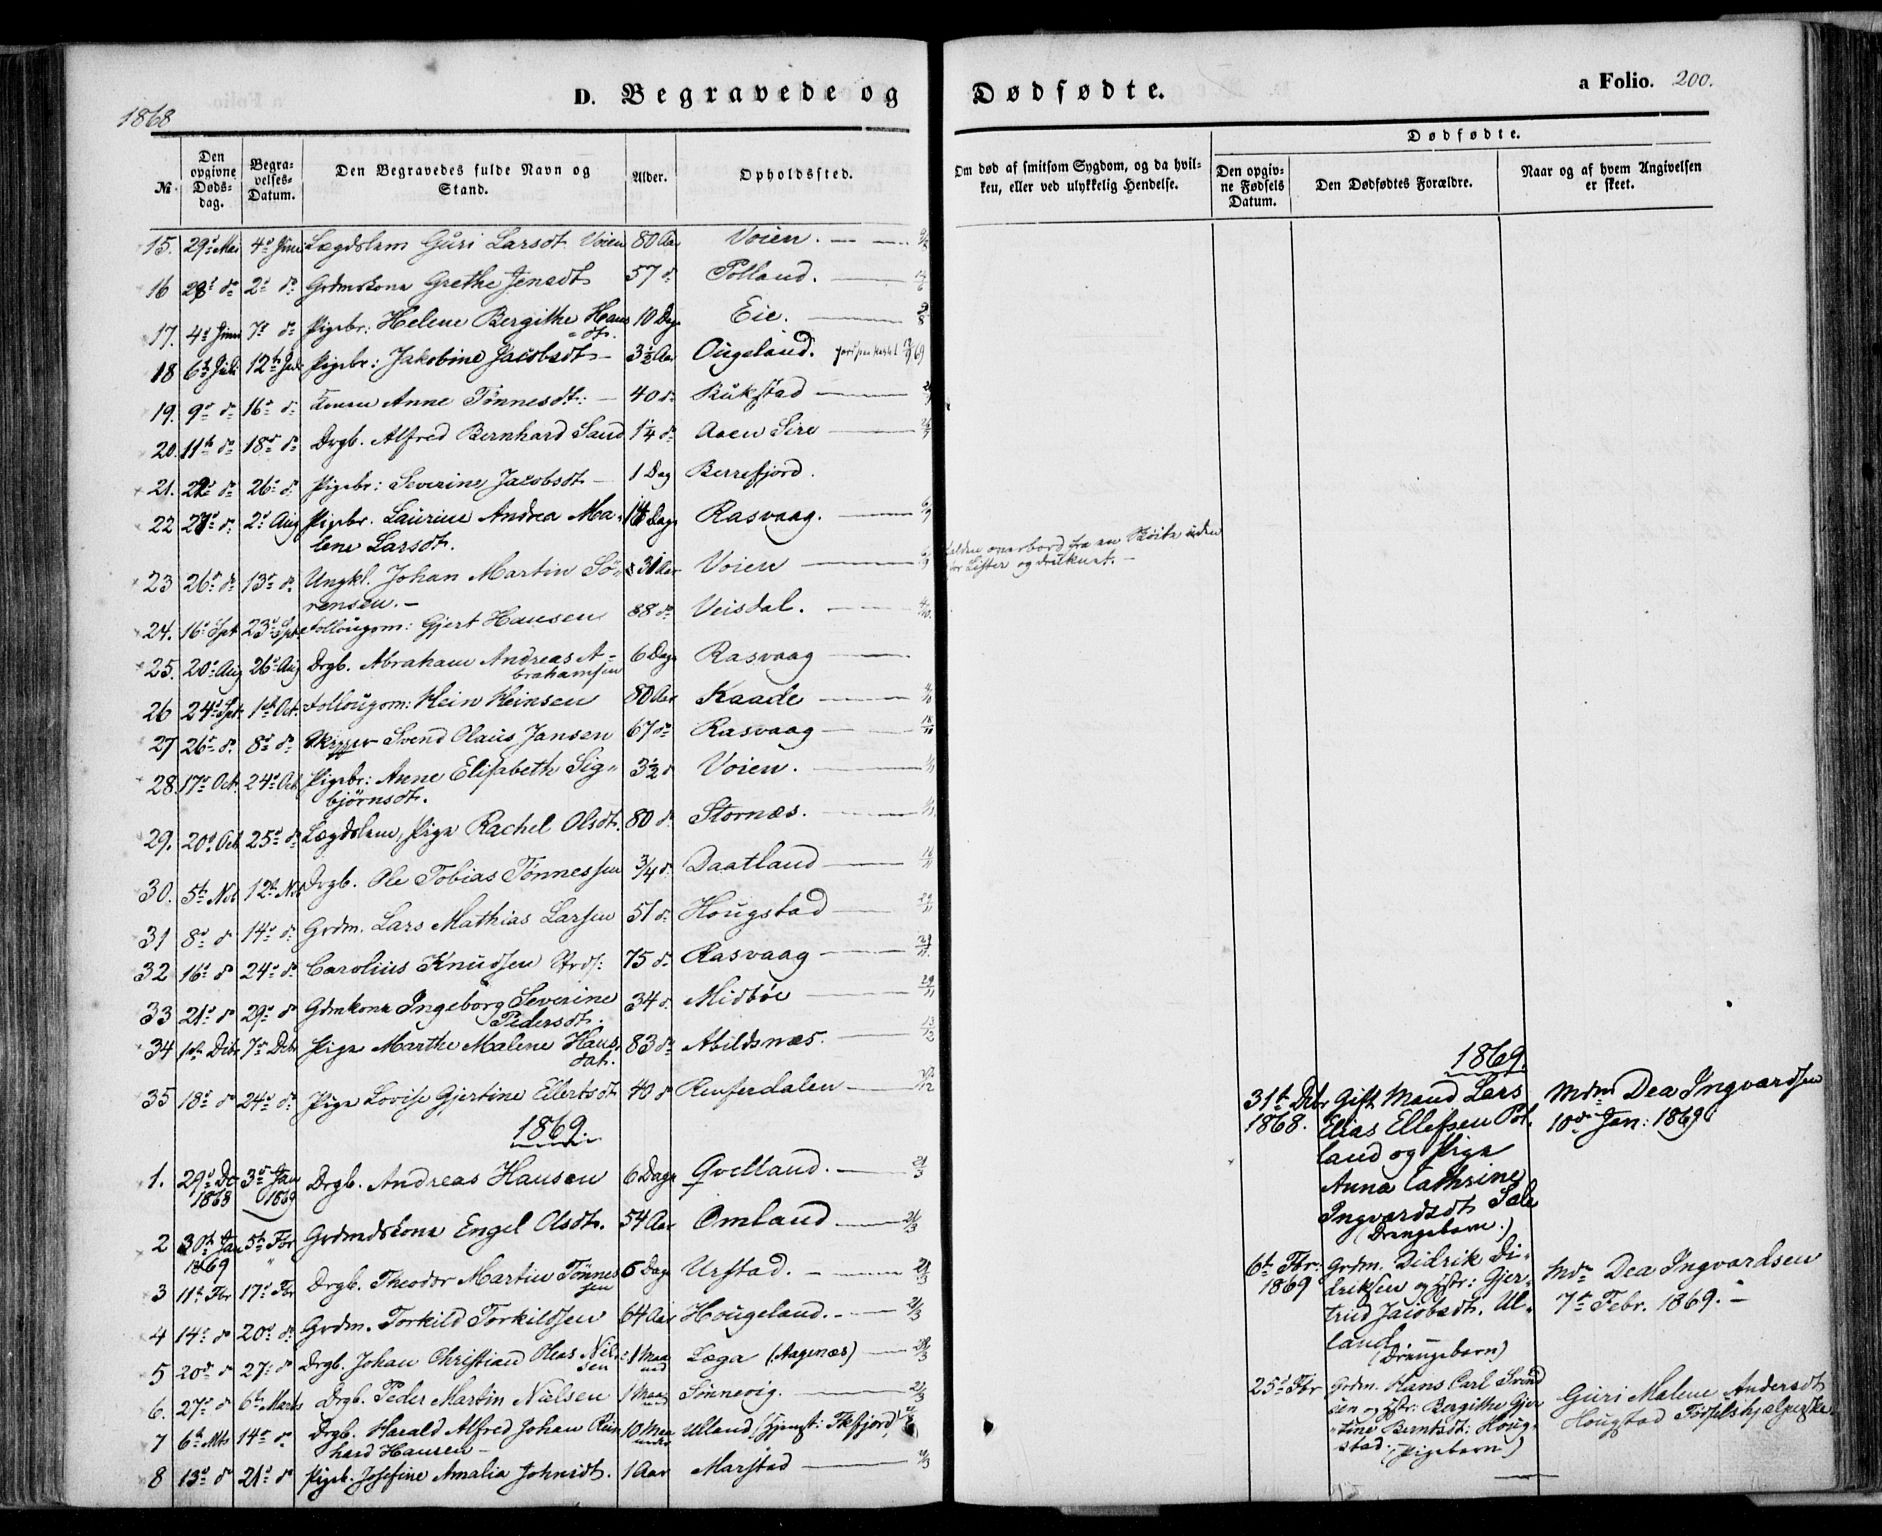 1868
D. Begravede og Dødfødte.
a Folio. 200.
№.
Den opgivne Dødsdag.
Begravelses-Datum.
Den Begravedes fulde Navn og Stand.
Alder.
Opholdssted.
Om død af smitsom Sygdom, og da hvilken, eller ved ulykkelig Hendelse.
Dødfødte.
Den opgivne Fødsels Datum.
Den Dødfødtes Forældre.
Naar og af hvem Angivelsen er skeet.
15. 29de Mai 4de Juni Lægdslem Guri Larsdt Voien 80 Aar Voien.
16 28de do 2de do Grdmskona Grethe Jensdt 57 do Polland.
17. 4de Juni 7de do Pigebr: Helene Bergithe Hans 10 Dage Eie.
dt.
18 6te Juli 12te Juli Pigebr: Jakobine Jacobsdt 3½ Aar Ougeland.
19. 9de do 16de do Anne Tønnesdt: 40 do Rukstad
20. 11te do 18de do Drgb. Alfred Bernhard Sand 1¼ do Aaen Sire
21. 22de do 26de do Pigebr: Severine Jacobsdt 1 Dag Berrefjord.
22 27de do 2de Aug Pigebr. Laurine Andrea Ma- 14 Dage Rasvaag.
lene Larsdt.
23 26de do 13de do Ungkl. Johan Martin Sø- 31 Aar Voien
overbord fra en Skøite uden
for Lister og druknet.
rensen.
24. 16de Spt 23de Spt Follougsm: Gjert Hansen 88 do Veisdal.
25. 20de Aug 26de Aug Drgb. Abraham Andreas A- 6 Dage Rasvaag
brahamsen
26 24de Spt. 1ste Oct. Follougsm: Hein Heinsen 80 Aar Kaade
27 26de do 8de do Skipper Svend Olaus Jansen 67 do Rasvaag
28. 17de Oct. 24de Oct Pigebr: Anne Elisabeth Sig- 3½ do Voien.
bjørnsdt.
29. 20de Oct 25de do Lægdslem, Pige Rachel Olsdt. 80 do Stornæs.
30. 5te Nov 12te Nov Drgb. Ole Tobias Tønnessen ¾ do Daatland
31 8de do 14de do Grdm. Lars Mathias Larsen 51 do Hougstad
32 16de do 24de do Carolius Knudsen 75 do Rasvaag
33 21de do 29de do Gdmkona Ingeborg Severine 34 do Midbøe
Pedersdt.
34 1ste Debr 7de Debr Pige Marthe Malene Hans 83 do Abildsnæs.
dat.
35 18de do 24de do Pige Lovise Gjertine Ellertsdt 40 do Reuferdalen
1869.
1. 29de De 3de Jan Drgb. Andreas Hansen 6 Dage Qvelland.
1868 1869
2 30te Jan 5te Fbr Grdmdskona Engel Olsdt. 54 Aar Omland
1869
3 11te Fbr 17de Fbr Drgb. Theodor Martin Tønnes 5 Dage Urstad.
sen
4 14de do 20de do Grdm. Torkild Torkildsen 64 Aar Hougeland.
5 20de do 27de do Drgb. Johan Christian Oleas Niel 1 Maa Lega (Aagenæs)
sen
6. 27de do 6te Marts Drgb. Peder Martin Nielsen 1 Maa Sønnevig.
7 6te Mts 14de do Drgb. Harald Alfred Johan Rein 10 Maa Ulland (Hjemst: Fksfjord)
hard Hansen
8 13de do 21de do Pigeb. Josefine Amalia Johnsdt. 1 Aar Marstad
1869.
31te Debr Gift Mand Lars Mdm Dea Ingvardsen
1868. Elias Ellefsen Pol- 10de Jan: 1869.
land og Pige
Anna Cathrine
Ingvardsdt Sale
(Drengebarn.)
6te Fbr: Grdm. Didrik Di- Mdm Dea Ingvardsen
1869 driksen og Hstr: Gjer- 7de Febr. 1869.
trud Jacobsdt. Ul-
land.
(Drengebarn)
25de Fbr Grdm. Hans Carl Svend Guri Malene Andersdt
sen og Hstr: Bergithe Gjer Hougstad Fødselshjælperske
tine Berntsdt: Houg-
stad. (Pigebarn)